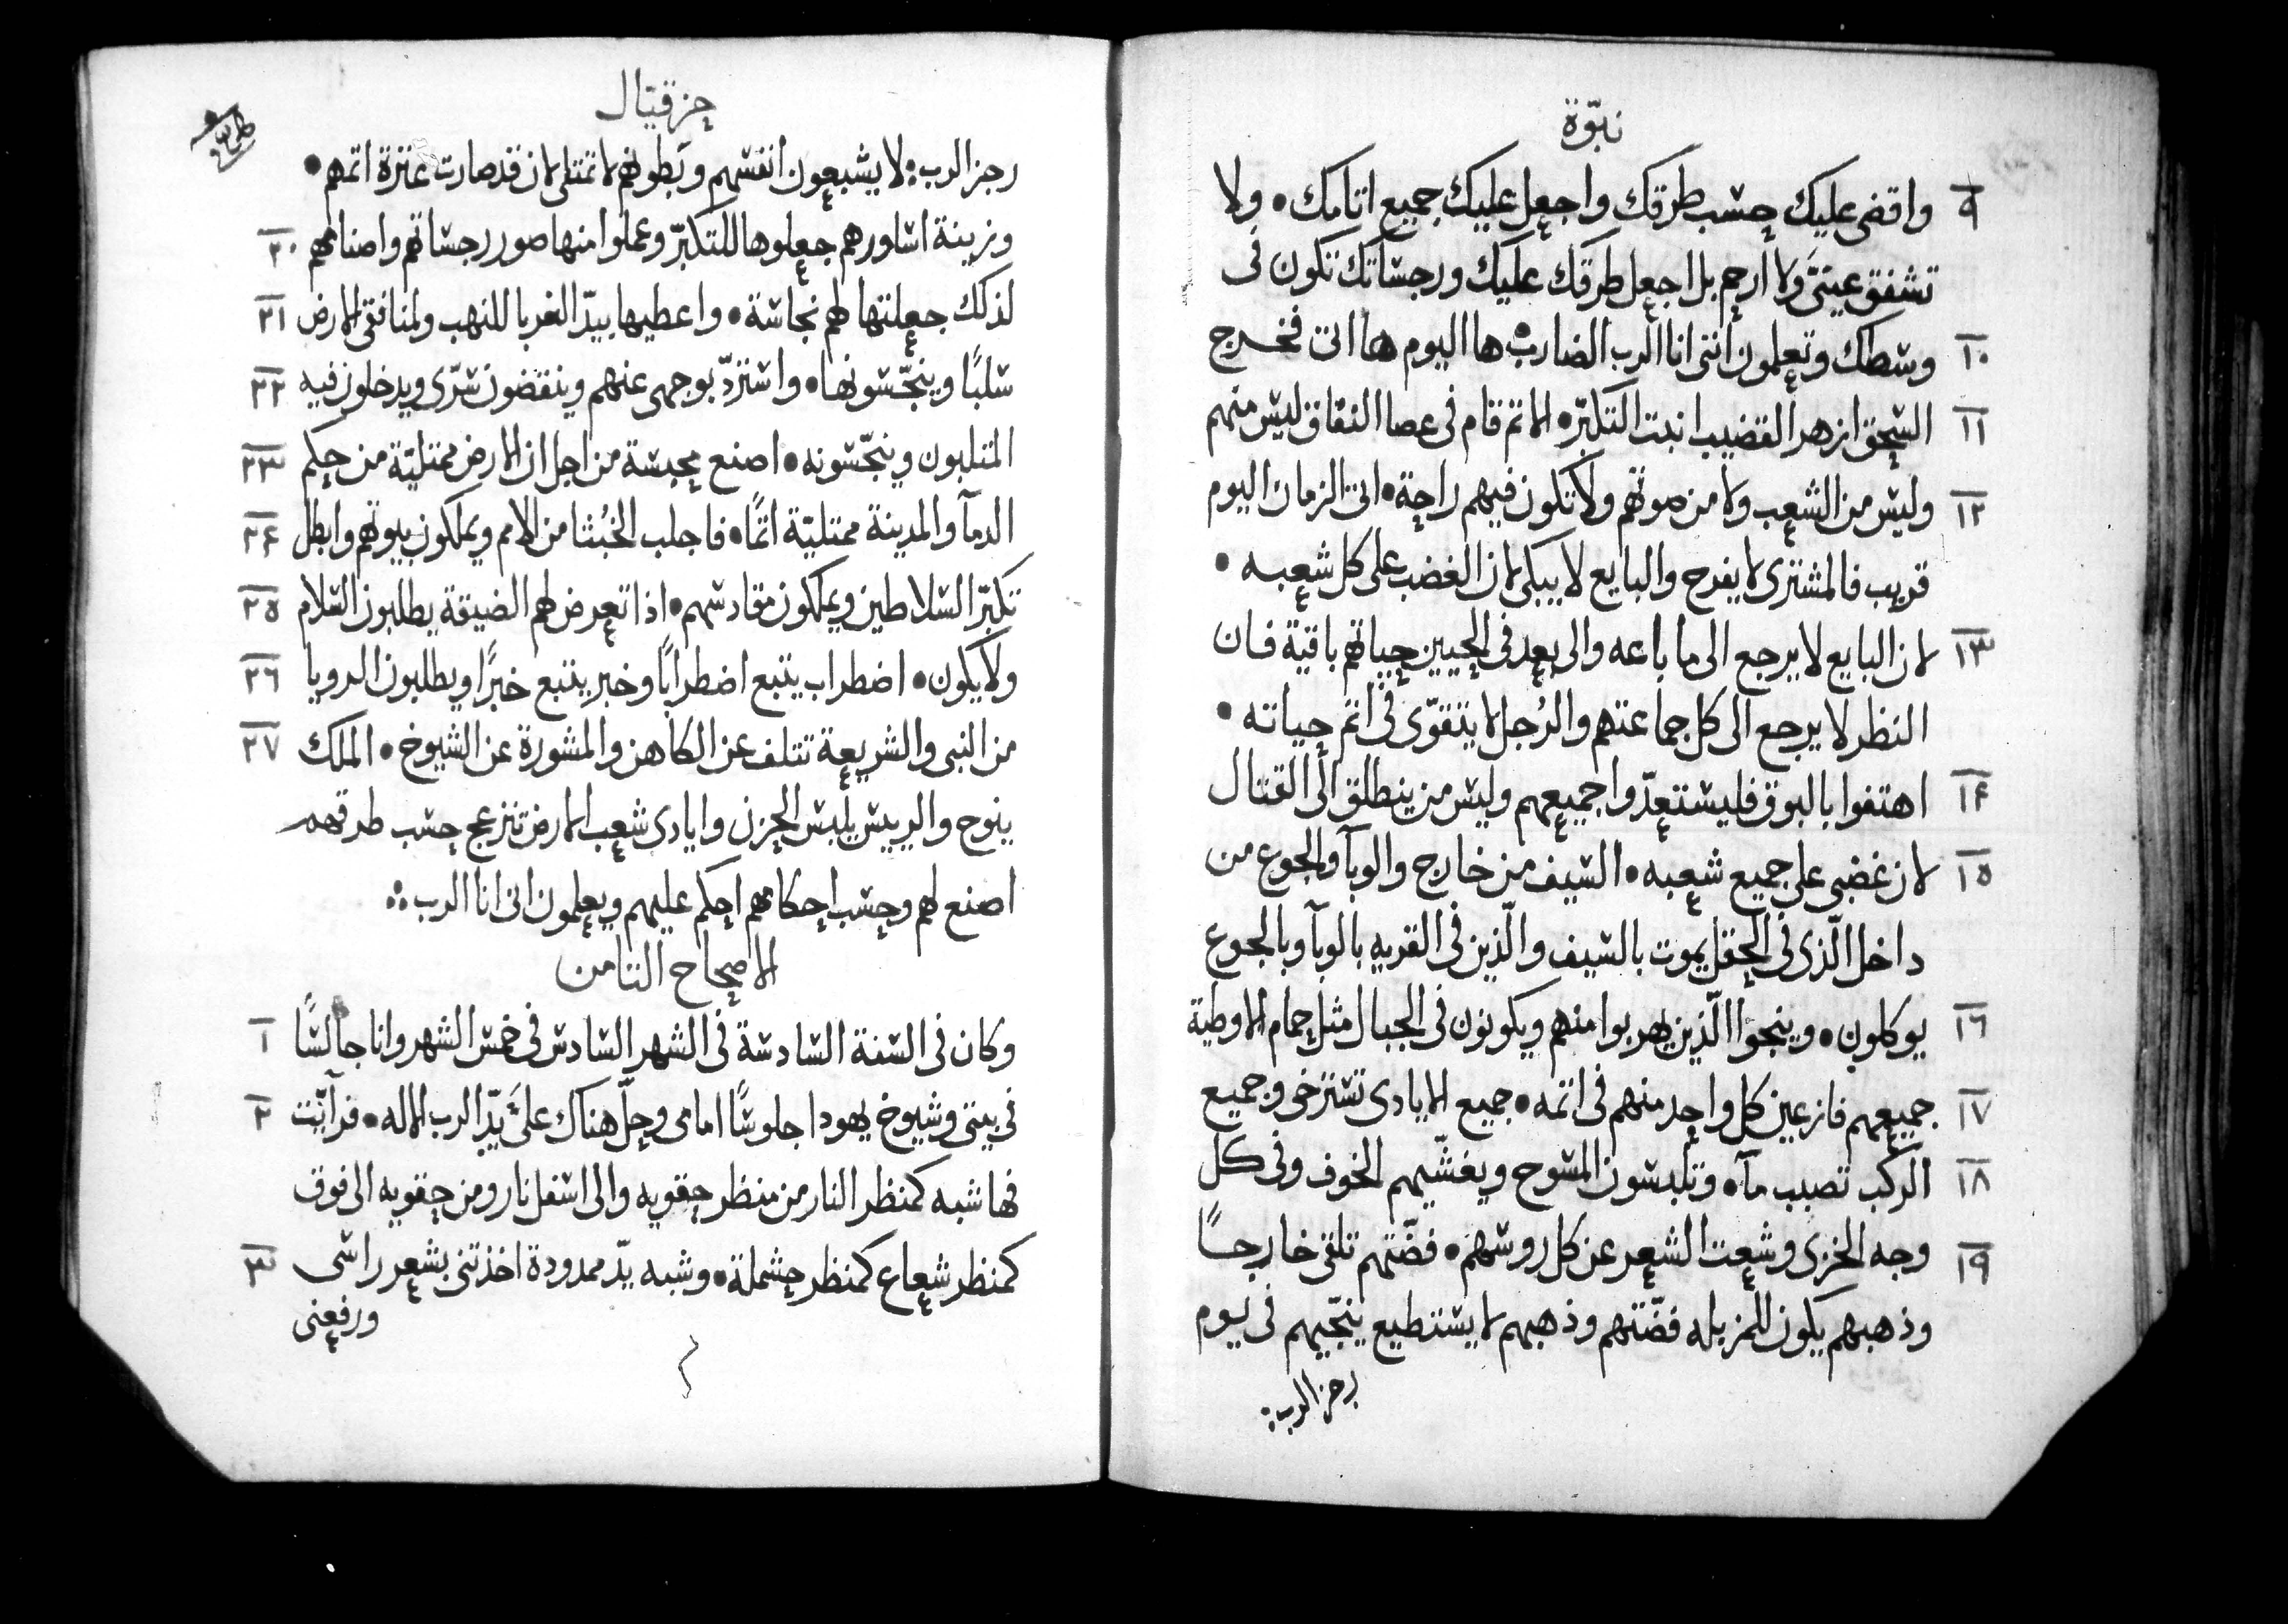 نبوّة
٩ واقضى عليك حسب طرقك واجعل عليك جميع اثامك • ولا
تشفق عينىَّ ولا ارحم بل اجعل طرقك عليك ورجساتك تكون فى
١٠ وسطك وتعلمون اننى انا الرب الضارب • ها اليوم ها اتى فخرج
١١ السحق ازهر القضيب انبت التكبّر • الاثم قام فى عصا النفاق ليس منهم
١٢ وليس من الشعب ولا من صوتهم ولا تكون فيهم راحة • اتى الزمان اليوم
قريب فالمشترى لا يفرح والبايع لا يبكى لان الغضب على كل شعبه •
١٣ لان البايع لا يرجع الى ما باعه والى بعد فى الحيين حياتهم باقية فان
النظر لا يرجع الى كل جماعتهم والرُجل لا يتقوّى فى اثم حياته •
١٤ اهتفوا بالبوق فليستعدّوا جميعهم وليس من ينطلق الى القتال
١٥ لان غضبى على جميع شعبه • السيف من خارج والوبآ والجوع من
داخل الّذى فى الحقل يموت بالسيف والّذين فى القريه بالوبآ وبالجوع
١٦ يوكلون • وينجوا الّذين يهربوا منهم ويكونون فى الجبال مثل حمام الاوطية
١٧ جميعهم فازعين كل واحد منهم فى اثمه • جميع الايادى تسترخى وجميع
١٨ الركب تصبب مآ • وتلبسون المسوح ويغشّيهم الخوف وفى كل
١٩ وجه الخزى وشعت الشعر عن كل روسهم • فضّتهم تلقى خارجًا
وذهبهم يكون للمزبله فضّتهم وذهبهم لا يستطيع ينجّيهم فى يوم
رجز الرب:
حزقيال
رجز الرب: لا يشبعون انفسهم وبطونهم لا تمتلى لان قد صارت عثرة اثمهم •
٢٠ وزينة اساورهم جعلوها للتكبّر وعملوا منها صور رجساتهم واصنامهم
٢١ لذلك جعلتها لهم نجاسة • واعطيها بيدّ الغربا للنهب ولمنافقى الارض
٢٢ سلبًا وينجّسونها • واستردّ بوجهى عنهم وينقضون سرّى ويدخلون فيه
٢٣ المثلبون وينجّسونه • اصنع محبسة من اجل ان الارض ممتليّة من حكم
٢٤ الدمآ والمدينة ممتليّة اثمًا • فاجلب الخُبثا من الامم ويملكون بيوتهم وابطل
٢٥ تكبّر السلاطين ويملكون مقادسهم • اذا تعرض لهم الضيقة يطلبون السلام
٢٦ ولا يكون • اضطراب يتبع اضطرابًا وخبر يتبع خبرًا ويطلبون الرويا
٢٧ من النبى والشريعة تتلف عن الكاهن والمشورة عن الشيوخ • الملك
ينوح والرييس يلبس الحزن وايادى شعب الارض تنزعج حسب طرقهم
اصنع لهم وحسب احكامهم احكم عليهم ويعلمون انى انا الرب :•
الاصحاح الثامن
١ وكان فى السنة السادسة فى الشهر السادس فى خمس الشهر وانا جالسًا
٢ فى بيتى وشيوخ يهودا جلوسًا امامى وحلّ هناك علىَّ يدّ الرب الاله • فرآيت
فها شبه كمنظر النار من منظر حقويه والى اسفل نار ومن حقويه الى فوق
٣ كمنظر شعاع كمنظر حشملة • وشبه يدّ ممدودة اخذتنى بشعر راسى
ورفعنى